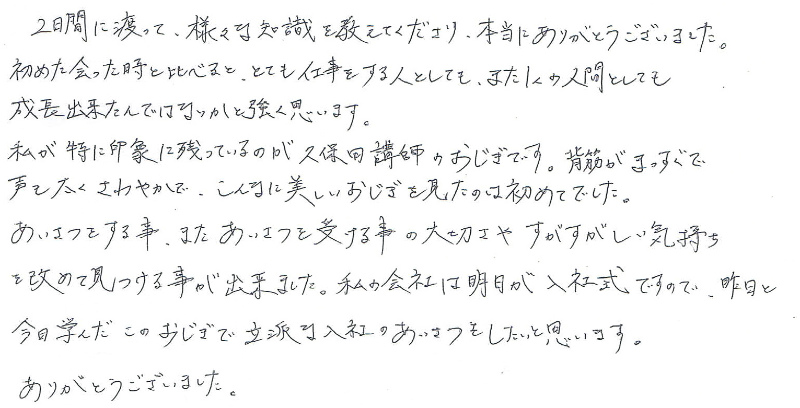 2日間に渡って、様々な知識を教えてくださり、本当にありがとうございました。
初めた会った時と比べると、とても仕事をする人としても、また1人の人間としても
成長出来たんではないかと強く思います。
私が特に印象に残っているのが久保田講師のおじぎです。背筋がまっすぐで
声も太くさわやかで、こんなに美しいおじぎを見たのは初めてでした。
あいさつをする事、またあいさつを受ける事の大切さやすがすがしい気持ち
を改めて見つける事が出来ました。私の会社は明日が入社式ですので、昨日と
今日学んだこのおじぎで立派な入社のあいさつをしたいと思います。
ありがとうございました。